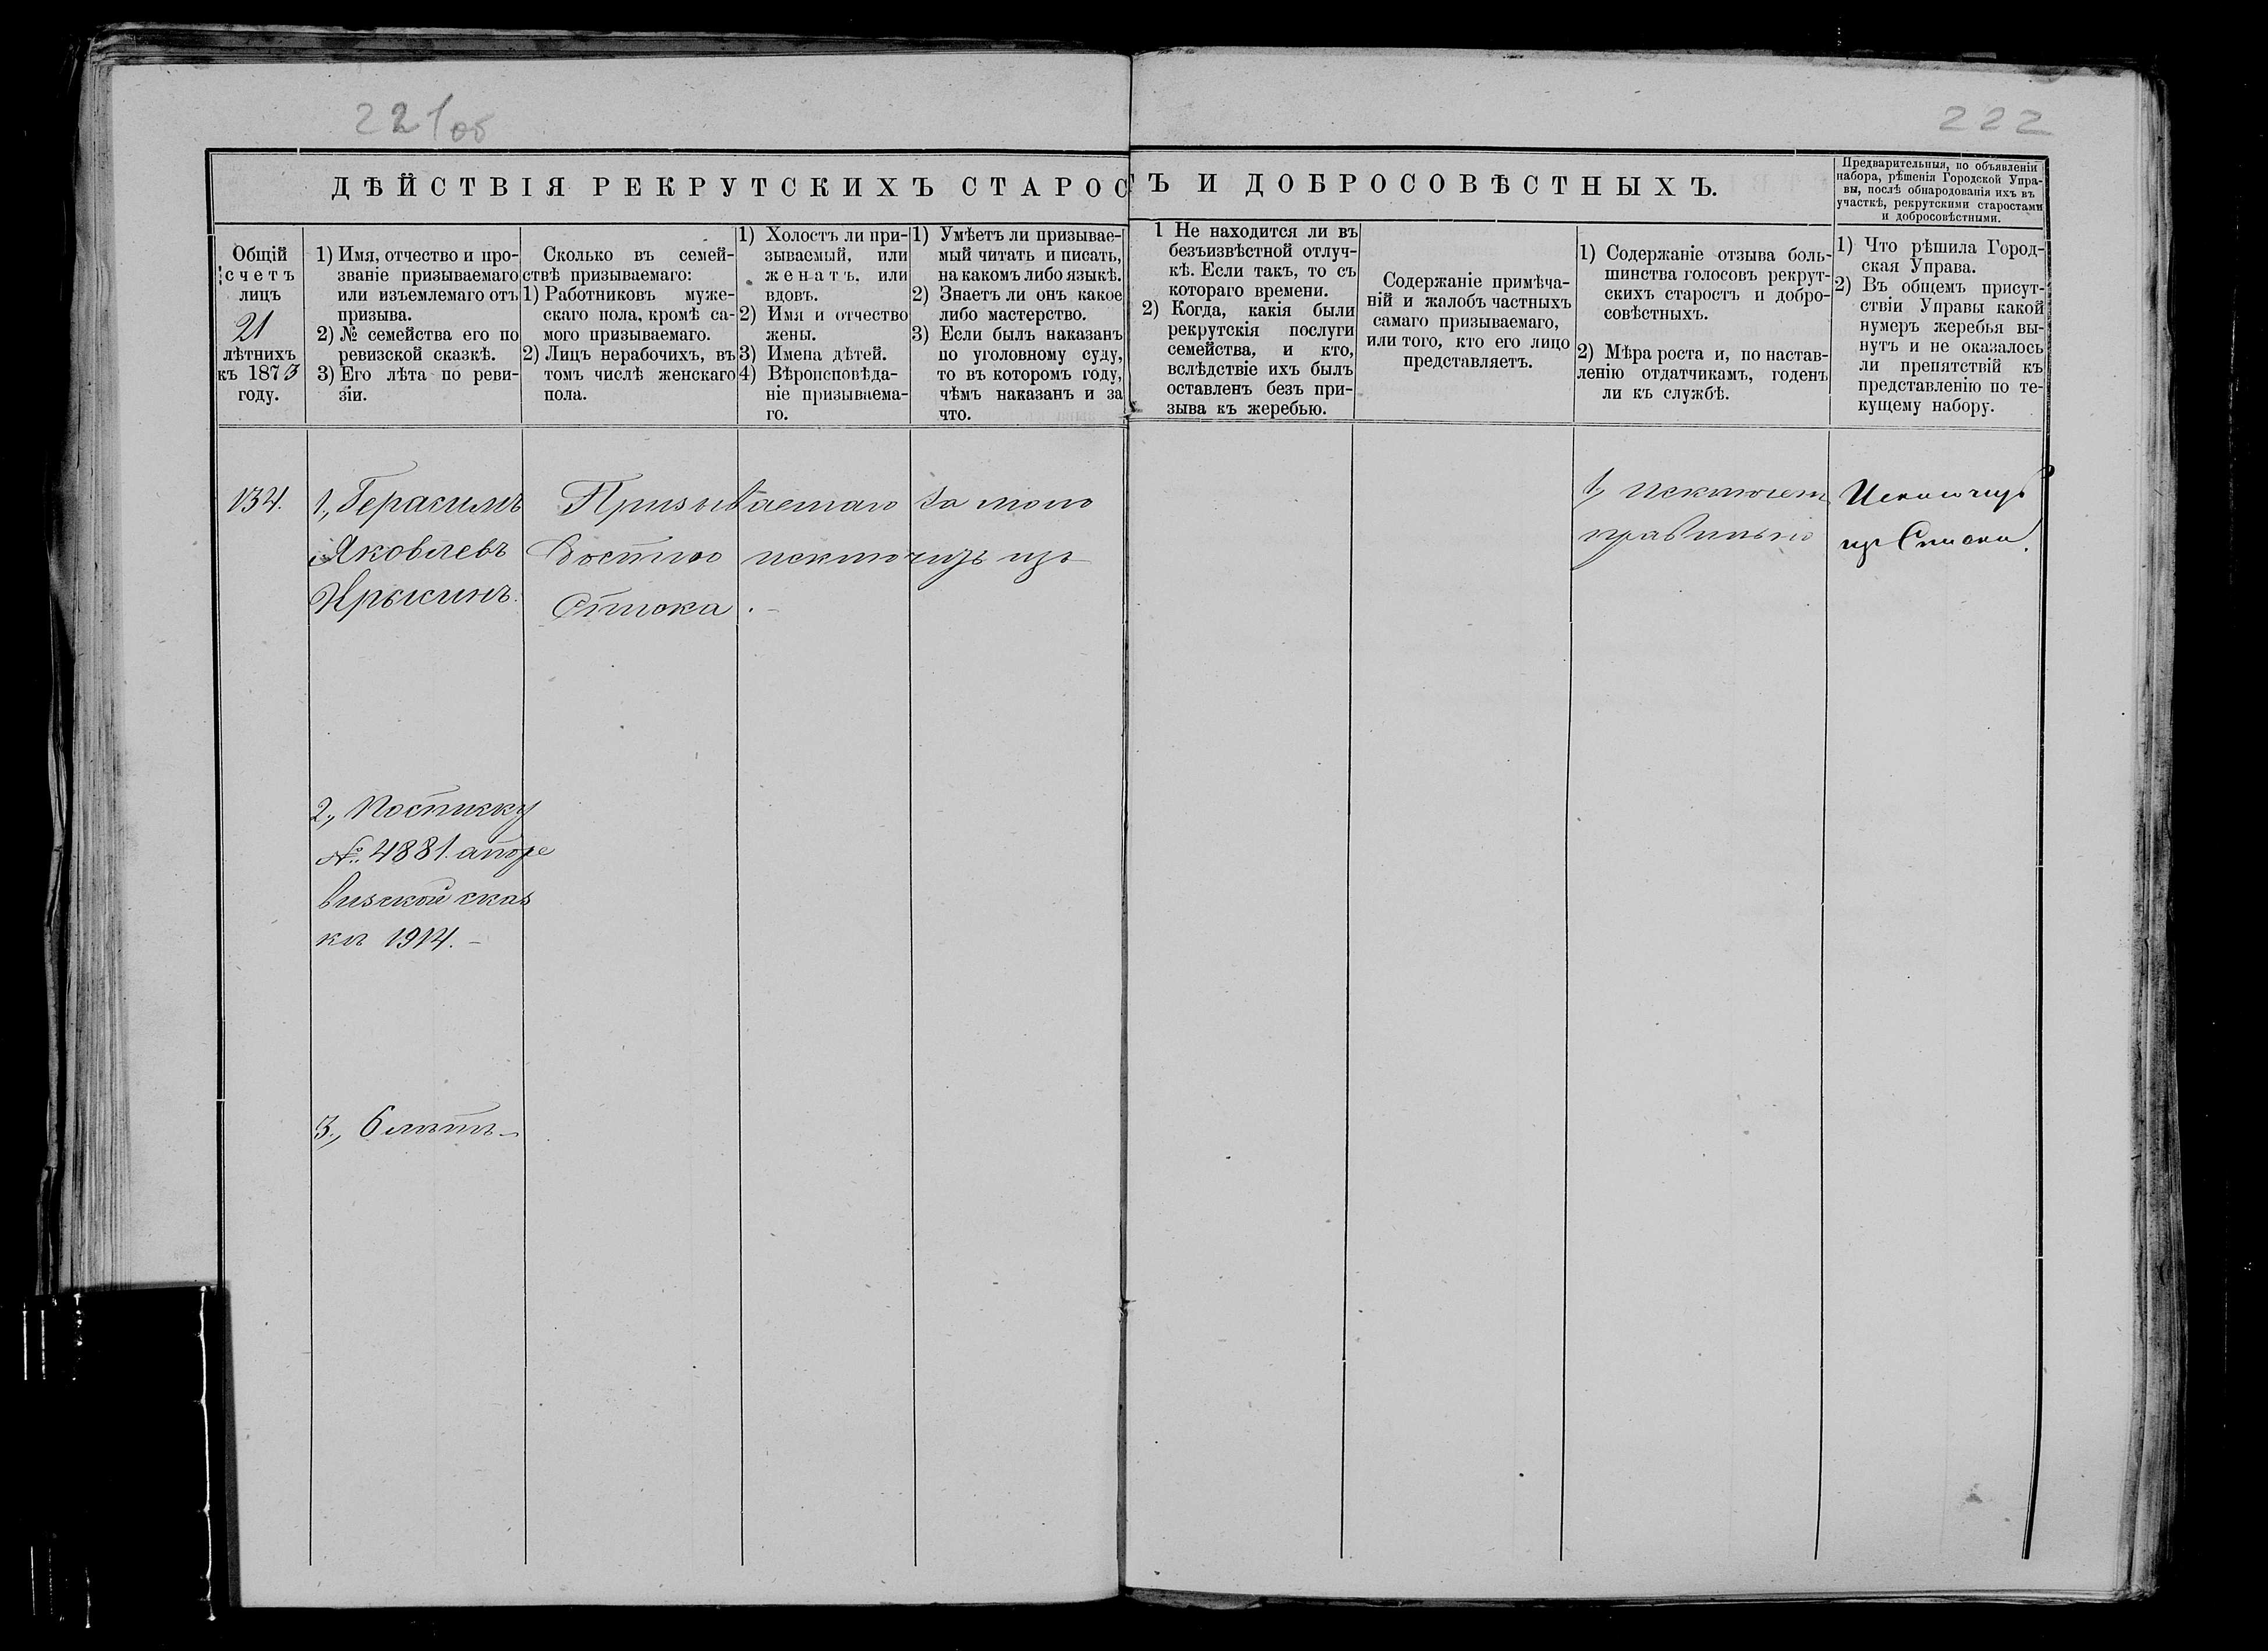 221об
222
ДѢЙСТВІЯ РЕКРУТСКИХЪ СТАРОСТЪ И ДОБРОСОВѢСТНЫХЪ.
Предварительныя, по объявленіи
набора, рѣшенія Городской Упра-
вы, послѣ обнародованія ихъ въ
участкѣ, рекрутскими старостами
и добросовѣстными.
Общій
счетъ
лицъ
21
лѣтнихъ
къ 1873
году.
1) Имя, отчество и про-
званіе призываемаго
или изъемлемаго отъ
призыва.
2) № семейства его по
ревизской сказкѣ.
3) Его лѣта по реви-
зіи.
Сколько въ семей-
ствѣ призываемаго:
1) Работниковъ муже-
скаго пола, кромѣ са-
мого призываемаго.
2) Лицъ нерабочихъ, въ
томъ числѣ женскаго
пола.
1) Холостъ ли при-
зываемый, или
женатъ, или
вдовъ.
2) Имя и отчество
жены.
3) Имена дѣтей.
4) Вѣроисповѣда-
ніе призываема-
го.
1) Умѣетъ ли призывае-
мый читать и писать,
на какомъ либо языкѣ.
2) Знаетъ ли онъ какое
либо мастерство.
3) Если былъ наказанъ
по уголовному суду,
то въ которомъ году,
чѣмъ наказанъ и за
что.
1 Не находится ли въ
безъизвѣстной отлуч-
кѣ. Если такъ, то съ
котораго времени.
2) Когда, какія были
рекрутскія послуги
семейства, и кто,
вслѣдствіе ихъ былъ
оставленъ безъ при-
зыва къ жеребью.
Содержаніе примѣча-
ній и жалобъ частныхъ
самаго призываемаго,
или того, кто его лицо
представляетъ.
1) Содержаніе отзыва боль-
шинства голосовъ рекрут-
скихъ старостъ и добро-
совѣстныхъ.
2) Мѣра роста и, по настав-
ленію отдатчикамъ, годенъ
ли къ службѣ.
1) Что рѣшила Город-
ская Управа.
2) Въ общемъ присут-
ствіи Управы какой
нумеръ жеребья вы-
нутъ и не оказалось
ли препятствій къ
представленію по те-
кущему набору.
134.
1., Герасимъ
Яковлевъ
Призываемаго за мало
1, исключен
правильно
Исключить
изъ Списка.
лѣтство исключить изъ
Списка.
2., По списку
№ 4881. апоре
визской сказ
кѣ 1914.
3., 6 лѣтъ